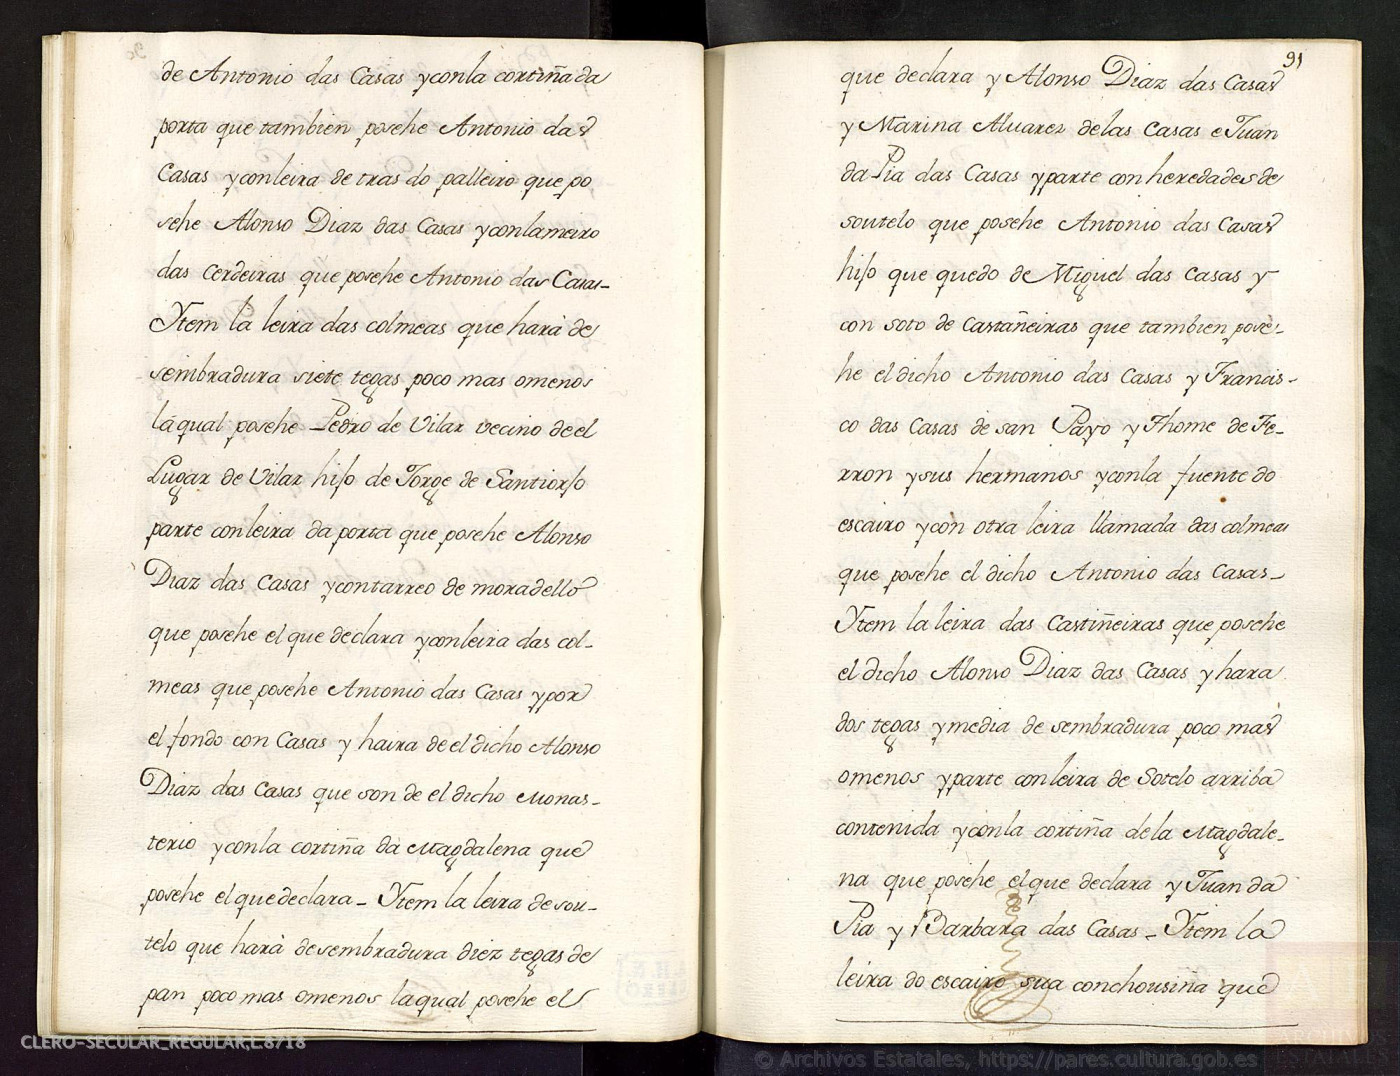 de Antonio das Casas y con la cortiña da
porta que tambien posehe Antonio das
Casas y con leira de tras do palleiro que po
sehe Alonso Diaz das Casas y con lameiro
das Cerdeiras que posehe Antonio das Casas_
Ytem la leira das colmeas que harà de
sembradura siete tegas poco mas omenos
la qual posehe Pedro de Vilar vecino de el
Lugar de Vilar hijo de Jorge de Santiorjo
parte con leira da porta que posehe Alonso
Diaz das Casas y con tarreo de moradello
que posehe el que declara y con leira das col_
meas que posehe Antonio das Casas y por
el fondo con Casas y haira de el dicho Alonso
Diaz das Casas que son de el dicho Monas_
terio y con la cortiña da Magdalena que
posehe el que declara_ Ytem la leira de sou_
telo que harà de sembradura diez tegas de
pan poco mas omenos la qual posehe el
91
que declara y Alonso Diaz das Casas
y Marina Alvarez de las Casas e Juan
da Pia das Casas y parte con heredades de
soutelo que posehe Antonio das Casas
hijo que quedo de Miguel das Casas y
con soto de Castañeiras que tambien pose_
he el dicho Antonio das Casas y Francis_
co das Casas de san Payo y Thome de Fe_
rron y sus hermanos y con la fuente do
escairo y con otra leira llamada das colmeas
que posehe el dicho Antonio das Casas_
Ytem la leira das Castiñeiras que posehe
el dicho Alonso Diaz das Casas y hara
dos tegas y media de sembradura poco mas
omenos y parte con leira de Sotelo arriba
contenida y con la cortiña de la Magdale_
na que posehe el que declara y Juan da
Pia y Barbara das Casas_ Ytem la
leira do escairo sua conchousiña que
CLERO-SECULAR_REGULAR,L.8718
© Archivos Estatales, https://pares.cultura.gob.es